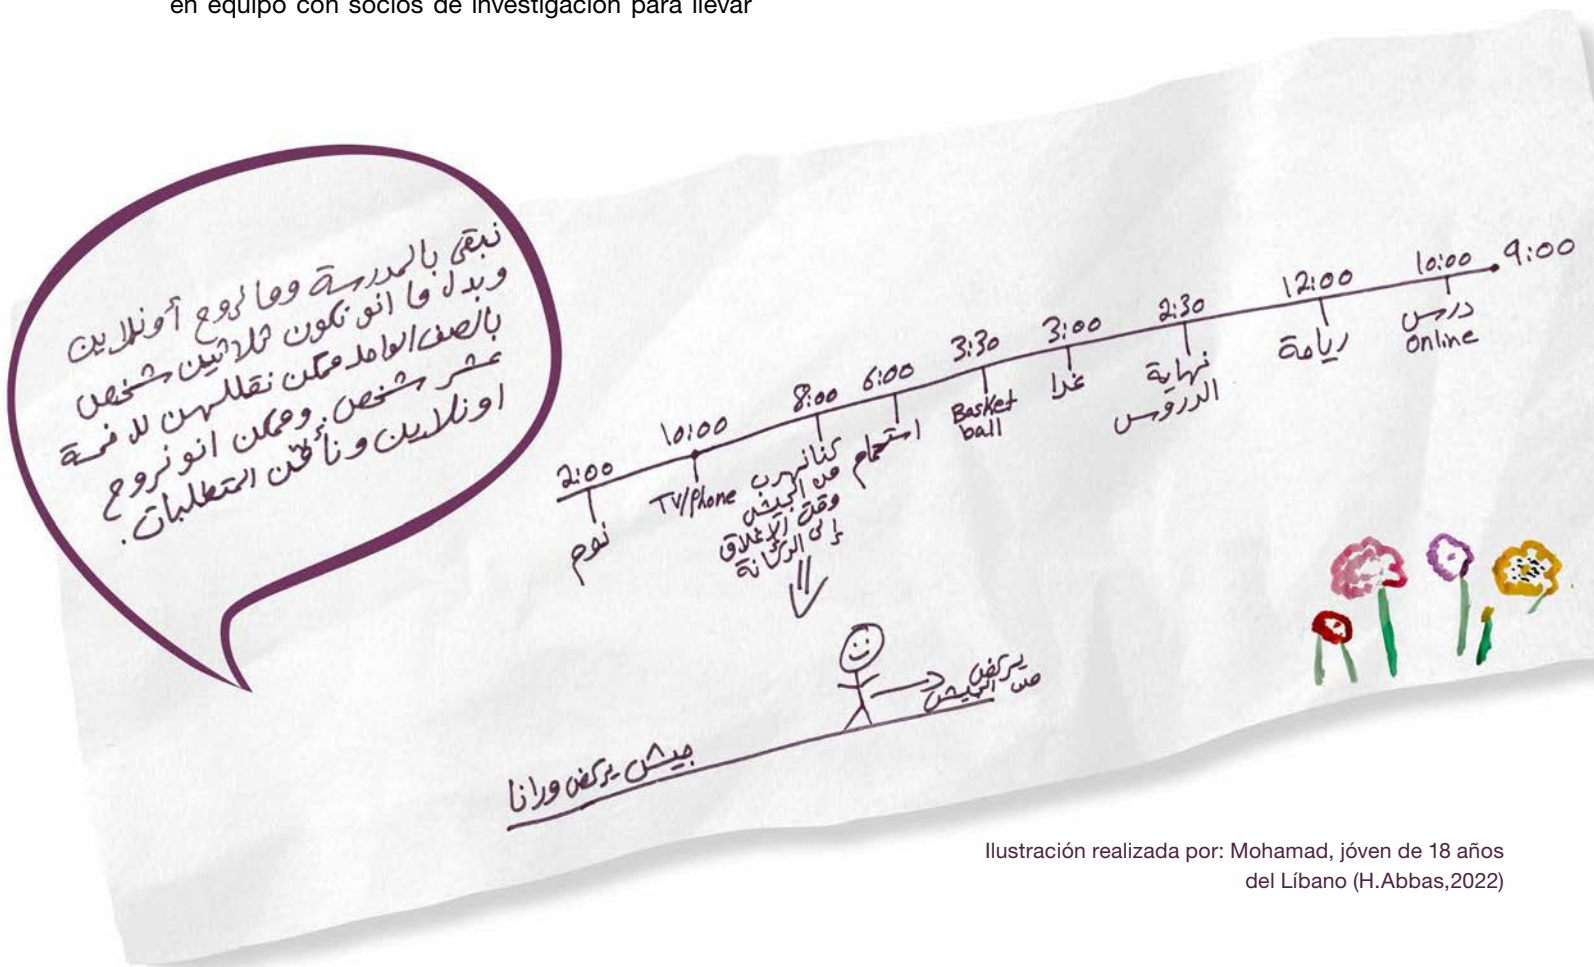 en equipo con socios de investigación para llevar
نبقى بالمدرسة وما نروح أونلاين
وبدل ما انو نكون ثلاثين شخص
بالصف الواحد ممكن نقللهن للخمسة
عشر شخص. وممكن انو نروح
اونلاين ونأمّن المتطلبات.
9:00
10:00
درس
Online
12:00
رياضة
2:30
نهاية
الدروس
3:00
غدا
3:30
Basket
ball
6:00
استحمام
8:00
كنا نهرب
من الجيش
وقت الإغلاق
إلى الدكانة
10:00
TV/Phone
2:00
نوم
يركض
من الجيش
جيش يركض ورانا
Ilustración realizada por: Mohamad, jóven de 18 años
del Líbano (H.Abbas,2022)